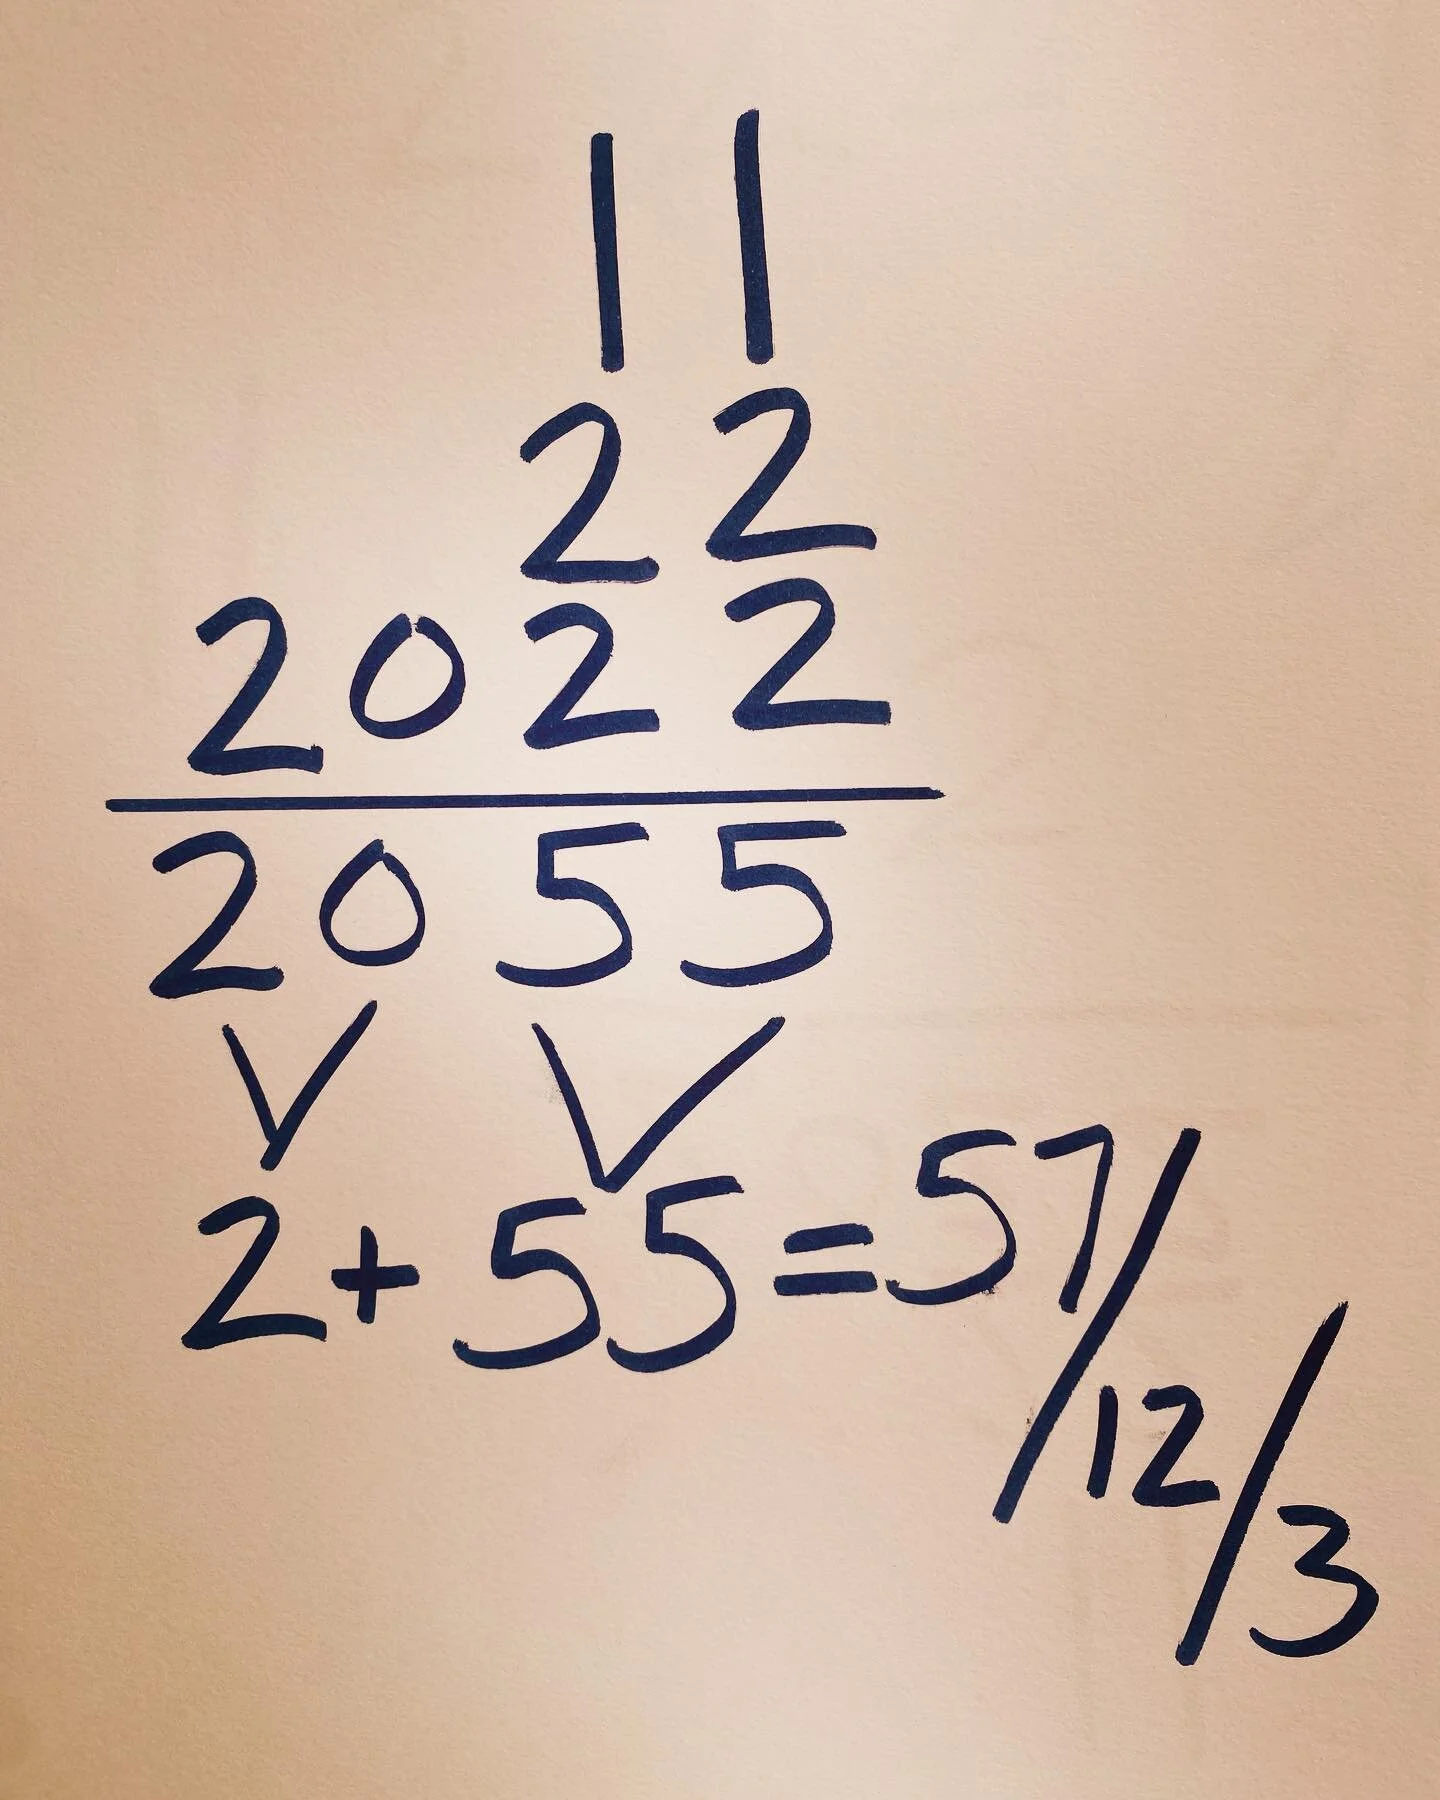 11
22
2022
2055
2+55=57/12/3